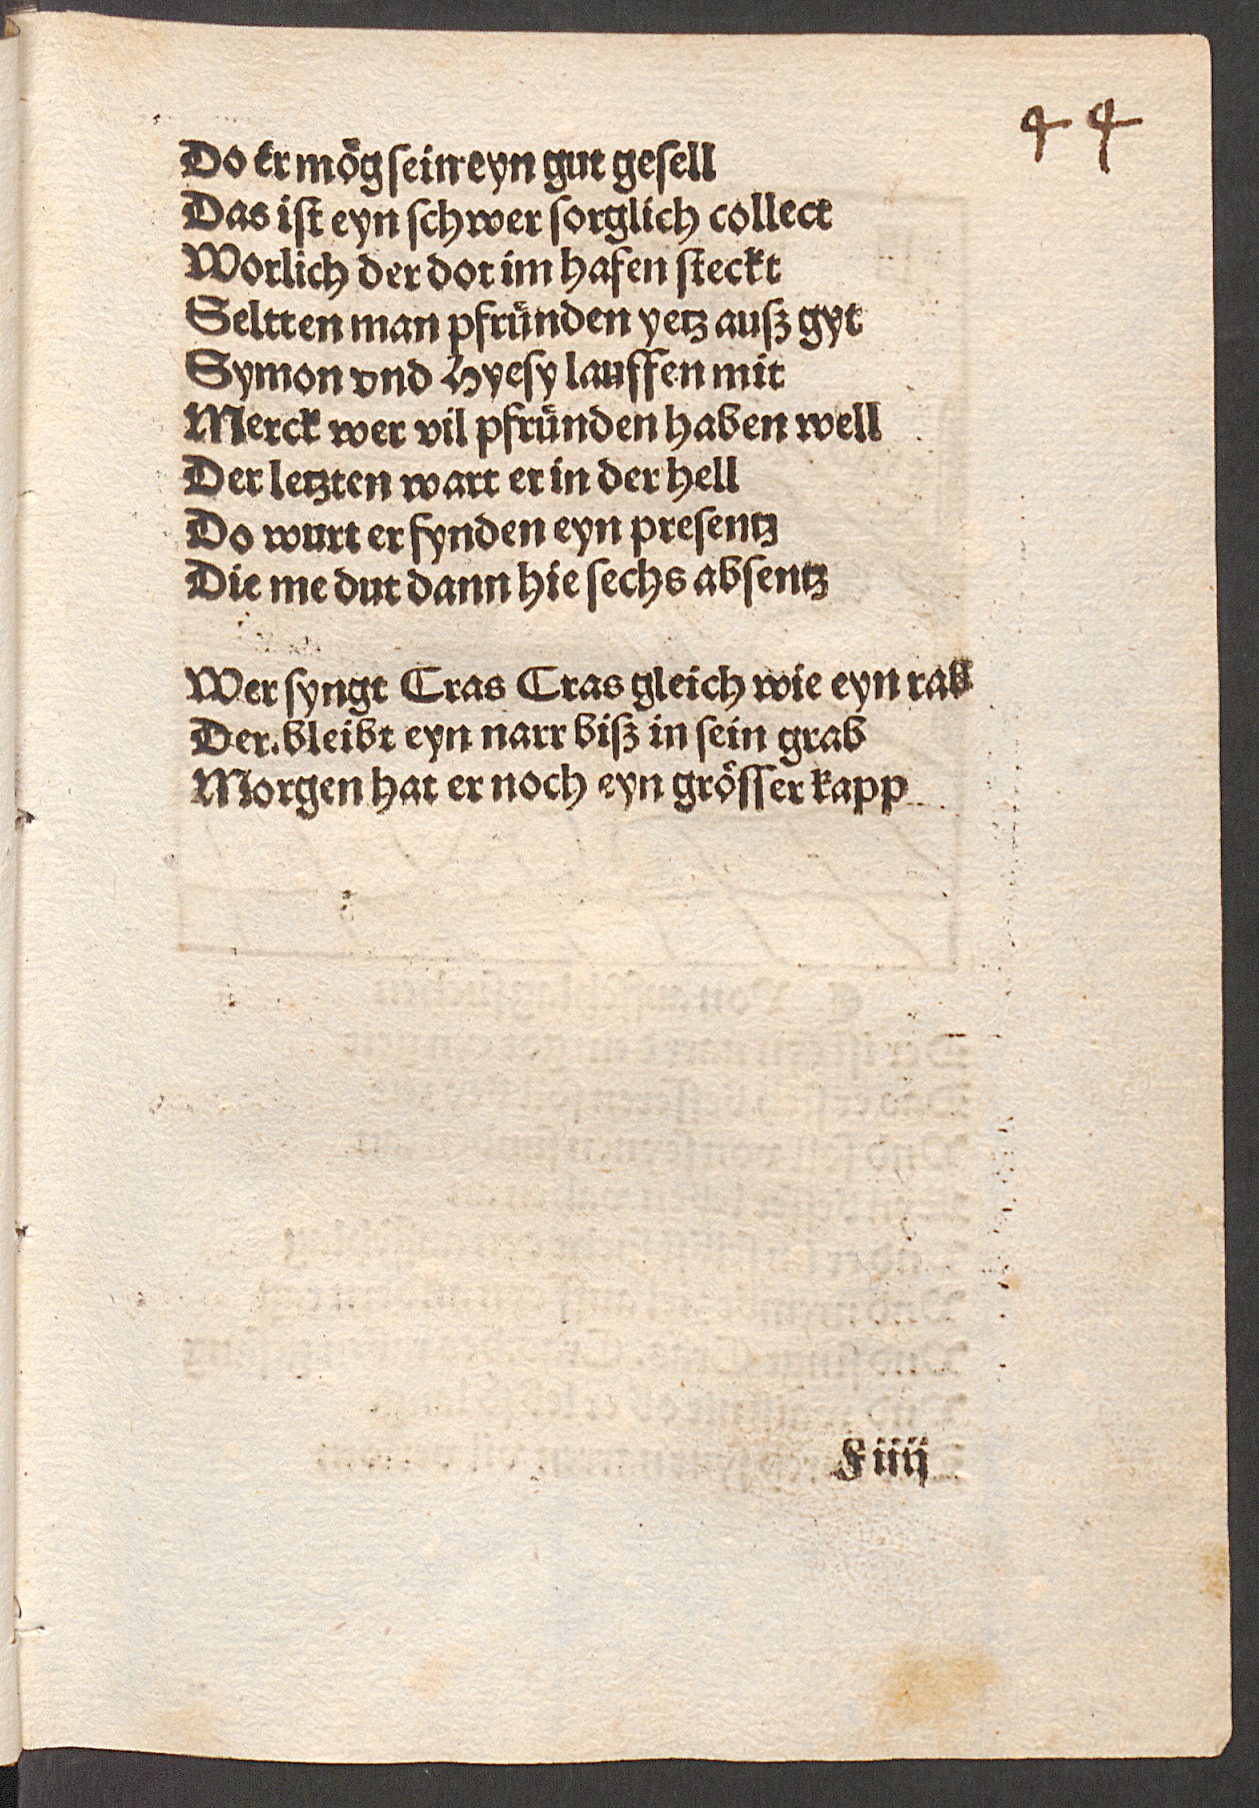 44
Do er mög sein eyn gut gesell
Das ist eyn schwer sorglich collect
Worlich der dot im hafen steckt
Seltten man pfründen yetz ausz gyt
Symon vnd Hyesy lauffen mit
Merck wer vil pfründen haben well
Der letzten wart er in der hell
Do wurt er fynden eyn presentz
Die me dut dann hie sechs absentz
Wer syngt Cras Cras gleich wie eyn rab
Der bleibt eyn narr bisz in sein grab
Morgen hat er noch eyn grösser kapp
F iiij